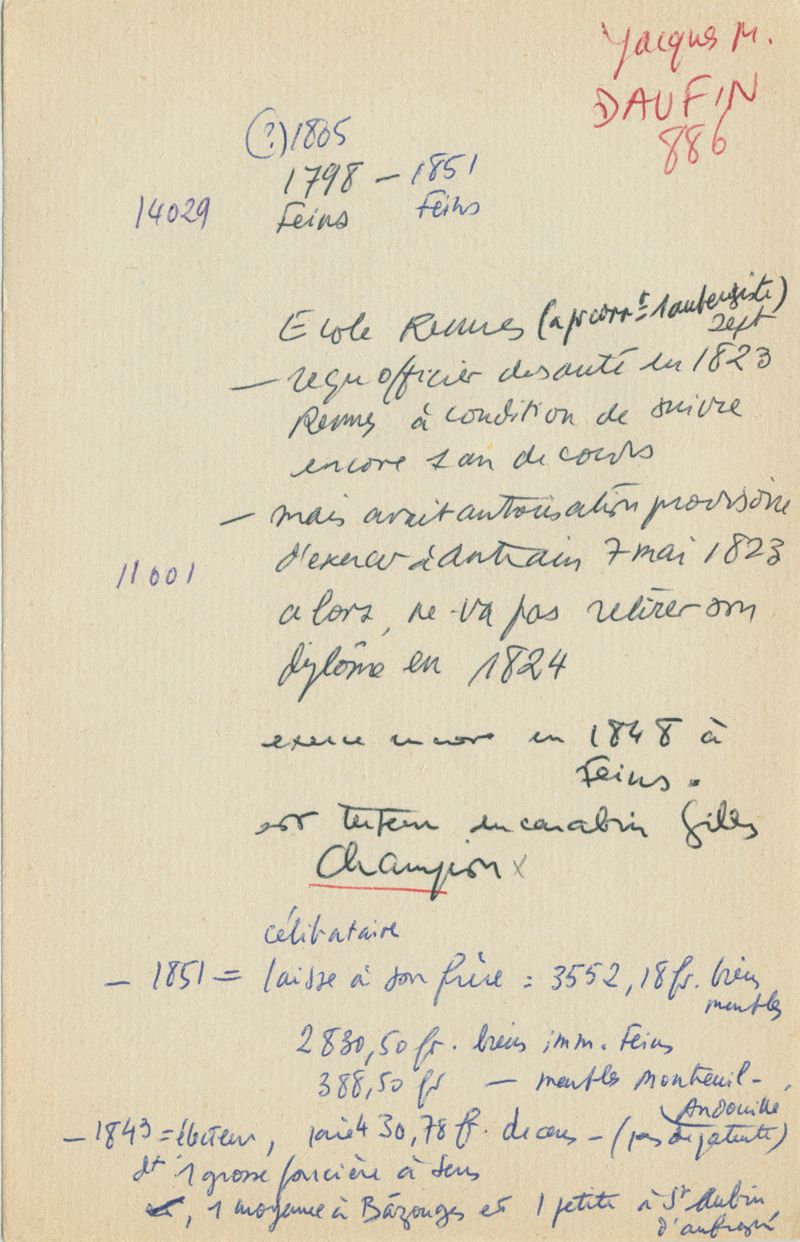 Jacques M.
DAUFIN
886
(?) 1805
1798 – 1851
14029 Feins Feins
Ecole Rennes (a pr corrt = 1 aubergiste)
Sept
– reçu officier de santé en 1823
Rennes à condition de suivre
encore 1 an de cours
– mais avait autorisation provisoire
11001 d'exercer à Antrain 7 mai 1823
alors, ne va pas retirer son
diplôme en 1824
exerce encore en 1848 à
Feins.
est tuteur du carabin Gilles
Champion x
célibataire
– 1851 = laisse à son frère : 3552,18 fr. biens
meubles
2830,50 fr. biens imm. Feins
388,50 fr – meubles Montreuil-
Andouillé
– 1843 = électeur, paie 430,78 ff. de cens – (pas de patente)
dt 1 grosse foncière à Sens
, 1 moyenne à Bazouges et 1 petite à St Aubin
d'aubigné